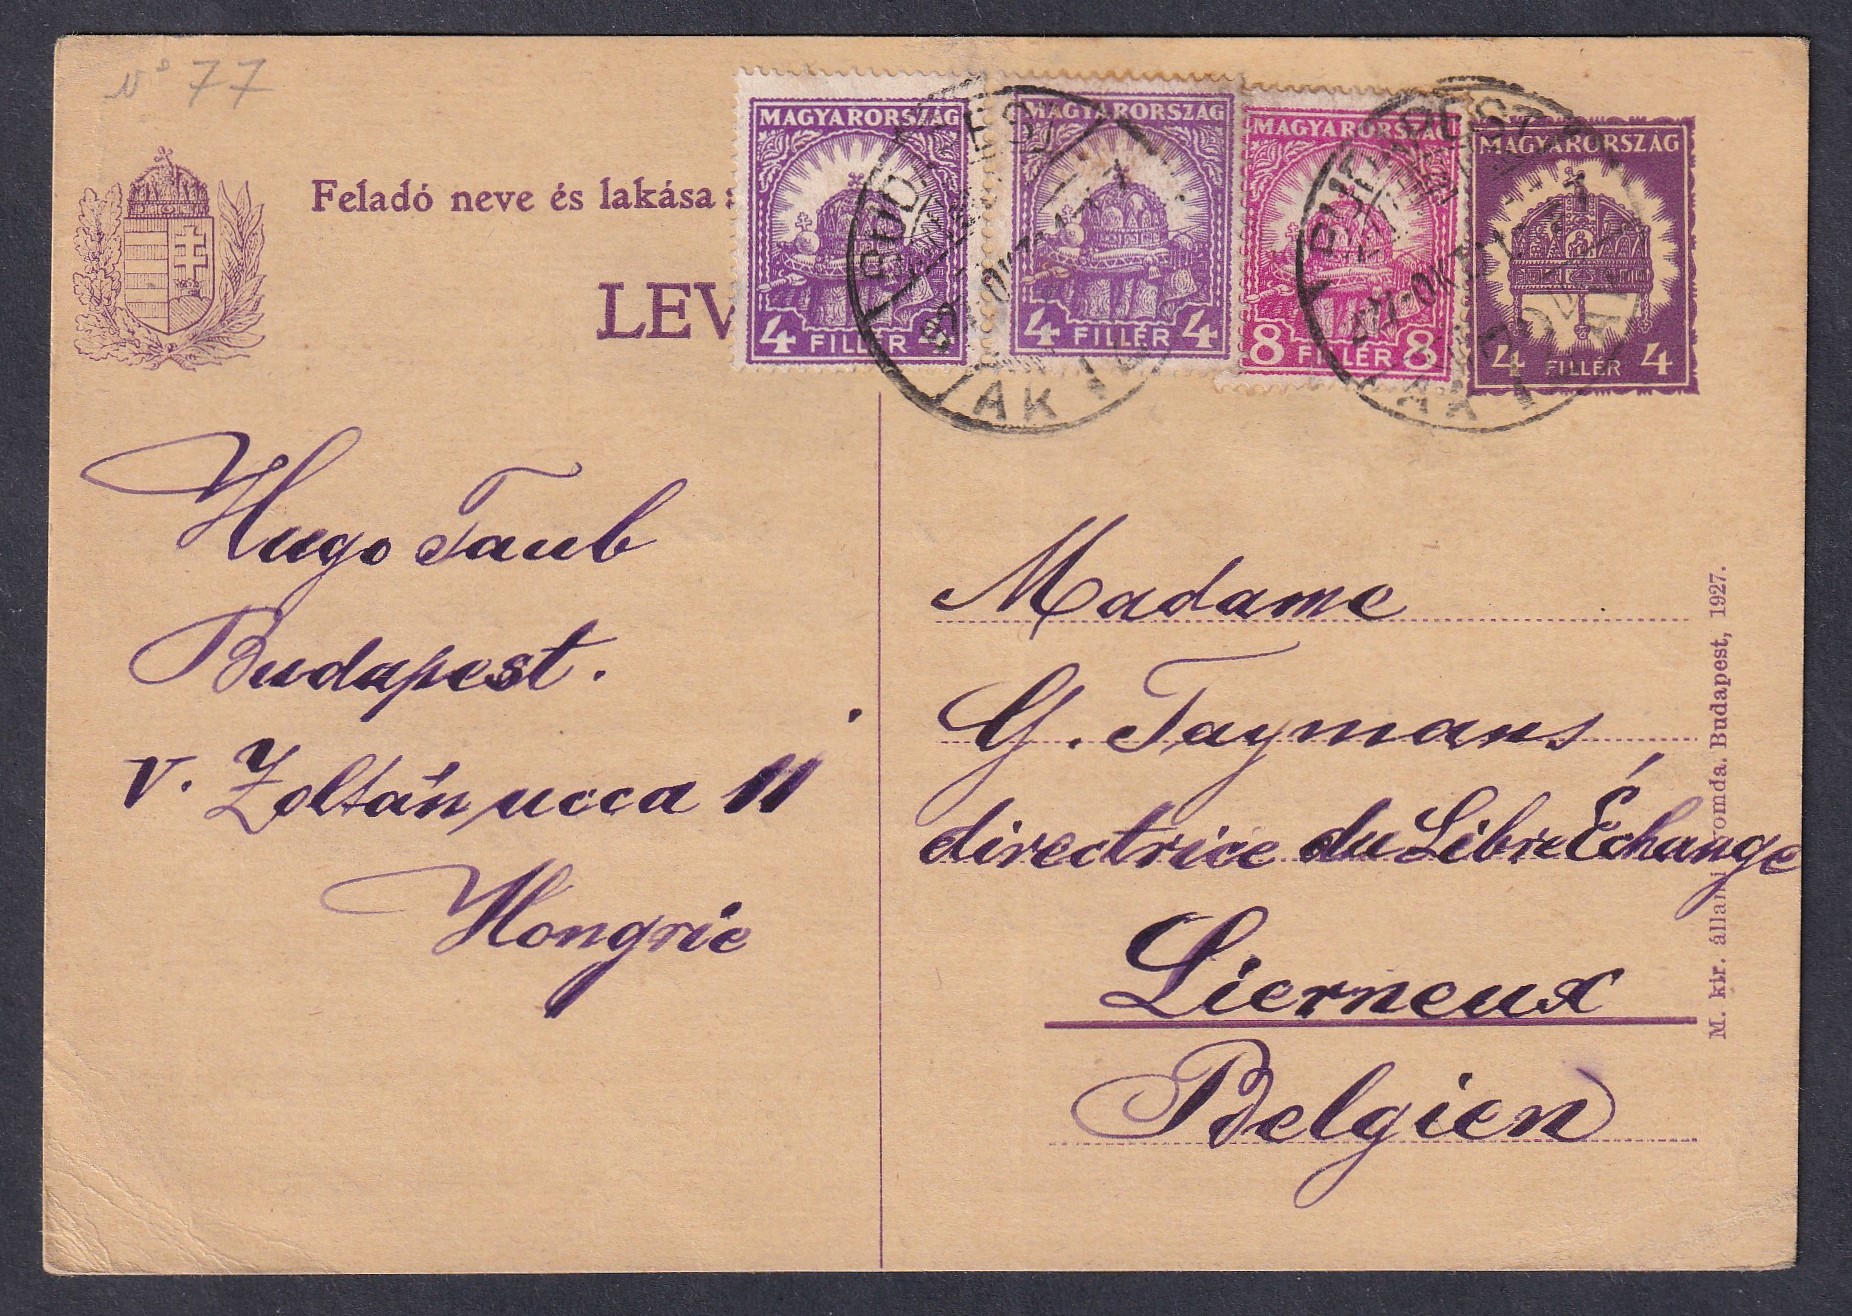 Nº 77
Feladó neve és lakása
LEV
MAGYARORSZÁG
4 FILLÉR 4
MAGYARORSZÁG
4 FILLÉR 4
MAGYARORSZÁG
8 FILLÉR 8
MAGYARORSZÁG
4 FILLÉR 4
BUDAPEST
BUDAPEST
Hugo Taub
Budapest.
V. Zoltán ucca 11
Hongrie
Madame
G. Taymans
directrice du Libre Échange
Lierneux
Belgien
M. kir. állami nyomda. Budapest, 1927.